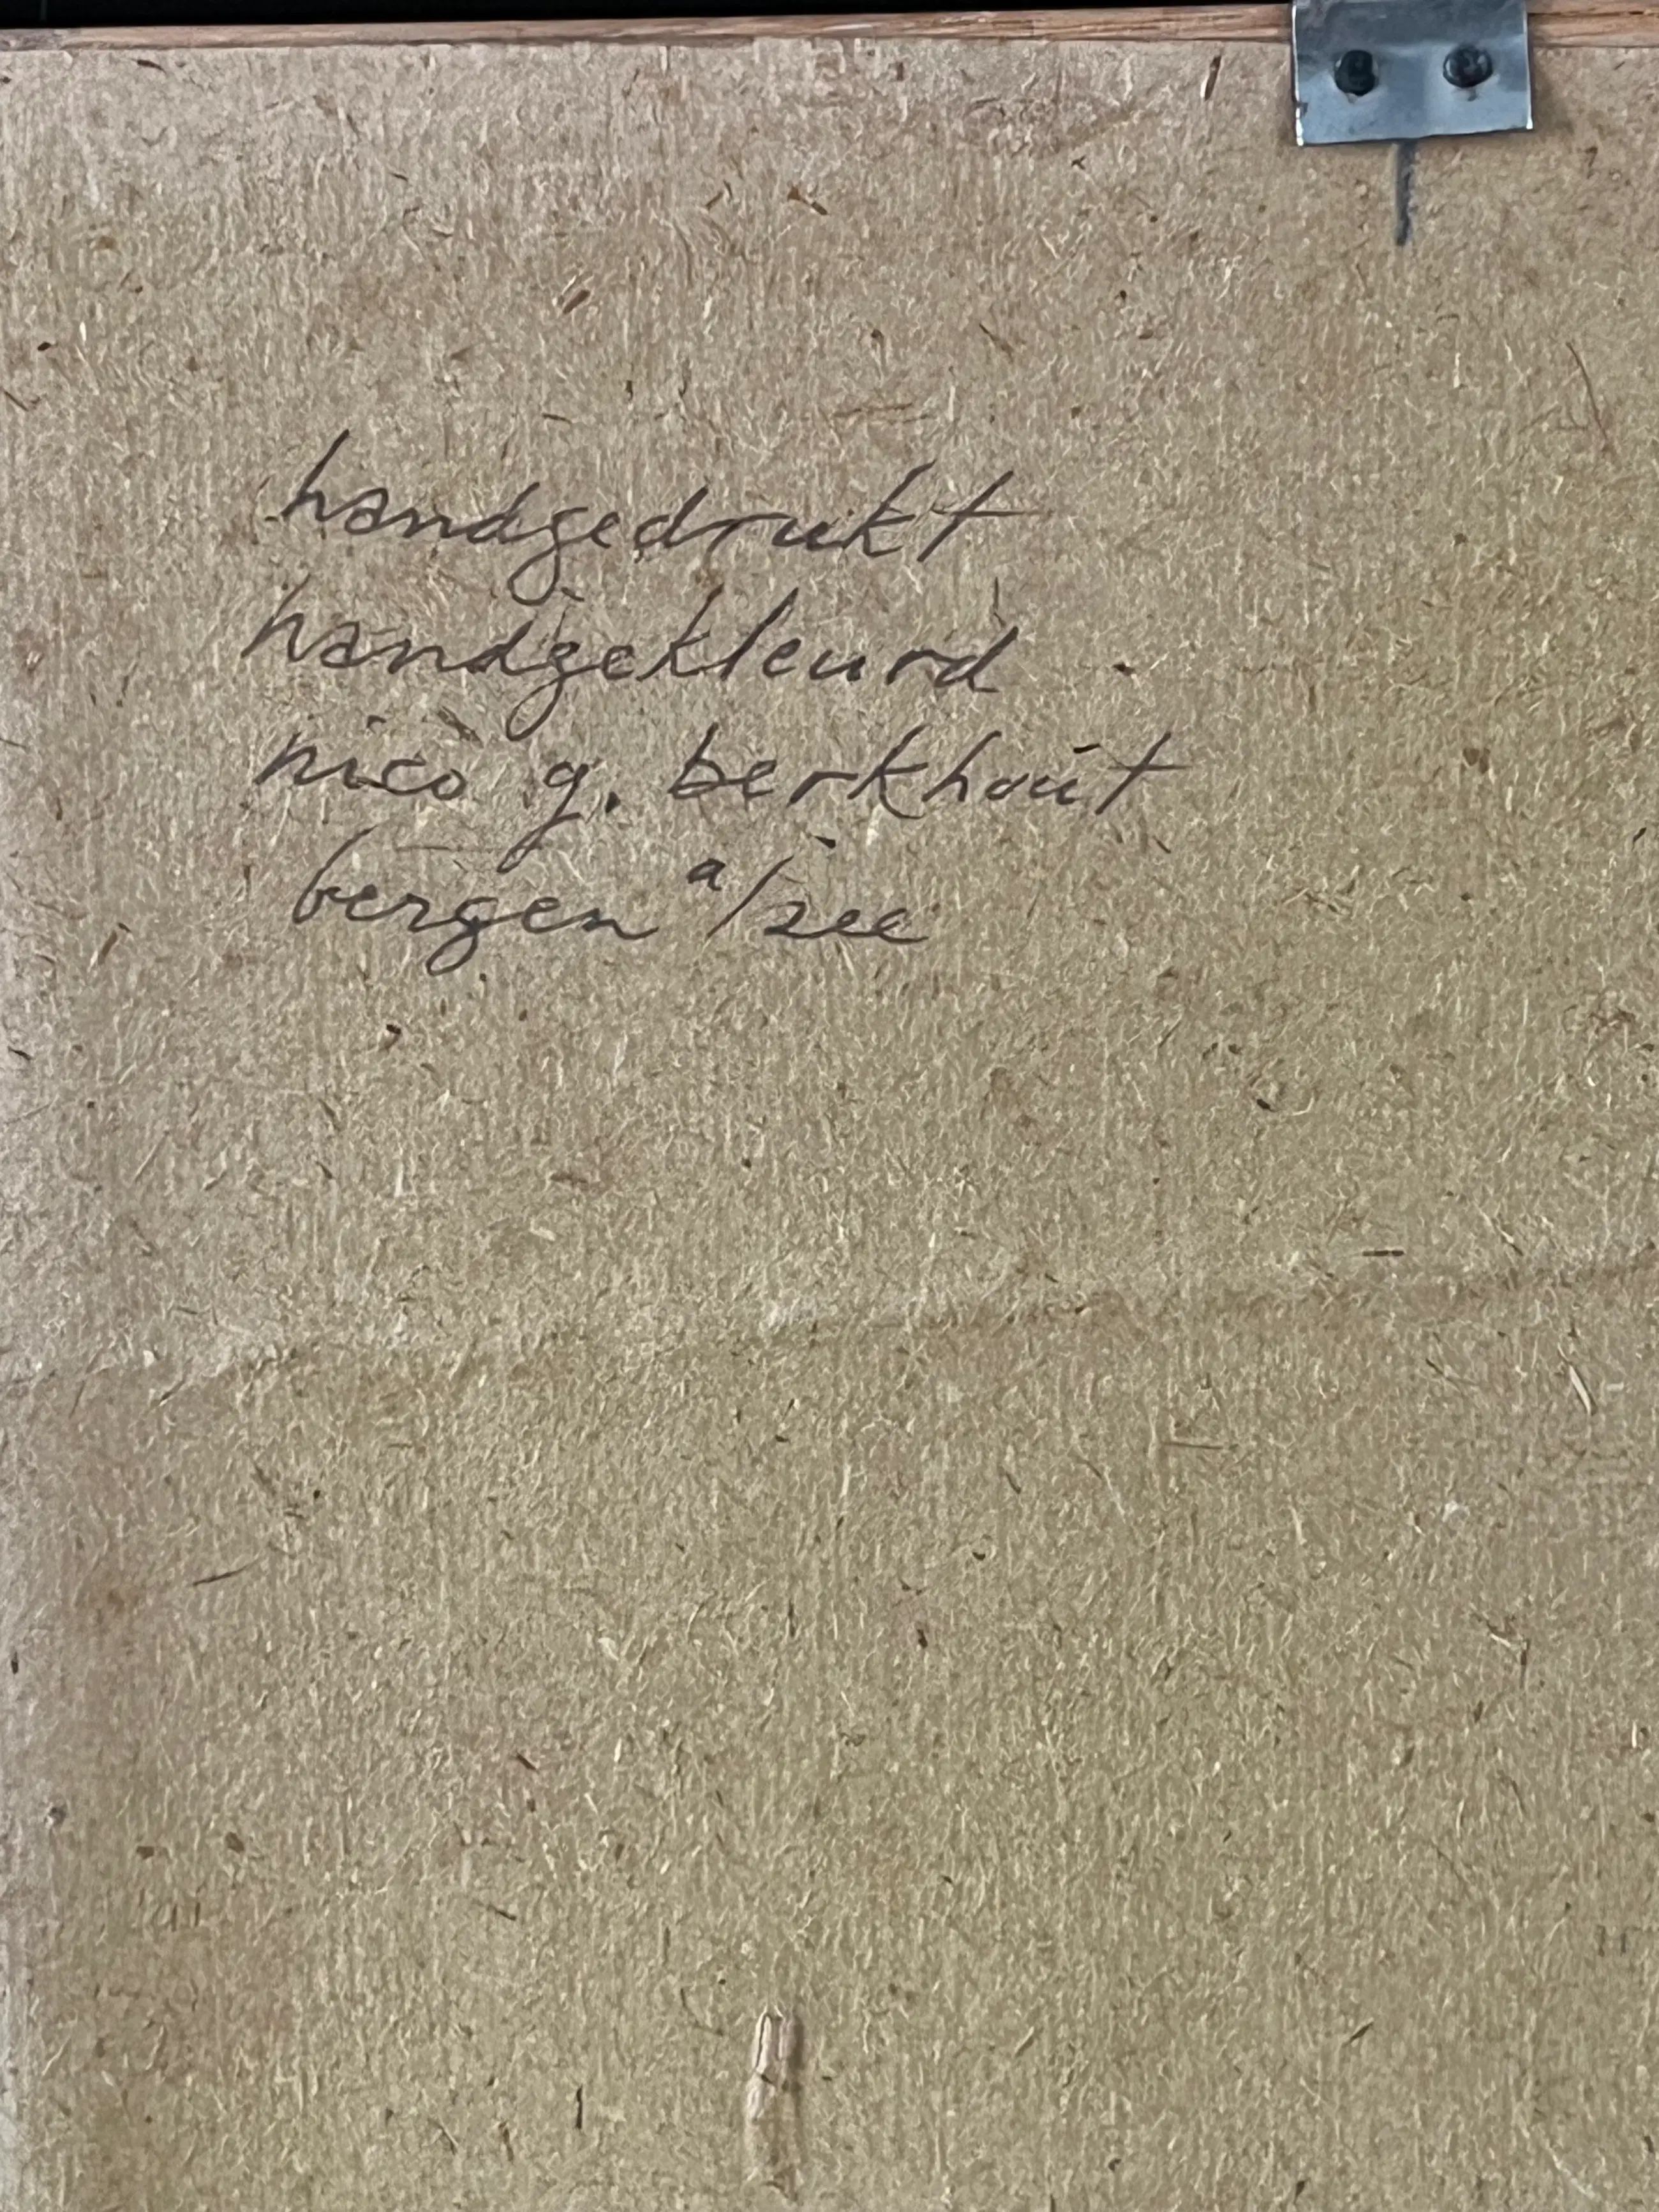 handgedrukt
handgekleurd
nico g. berkhout
bergen a/zee